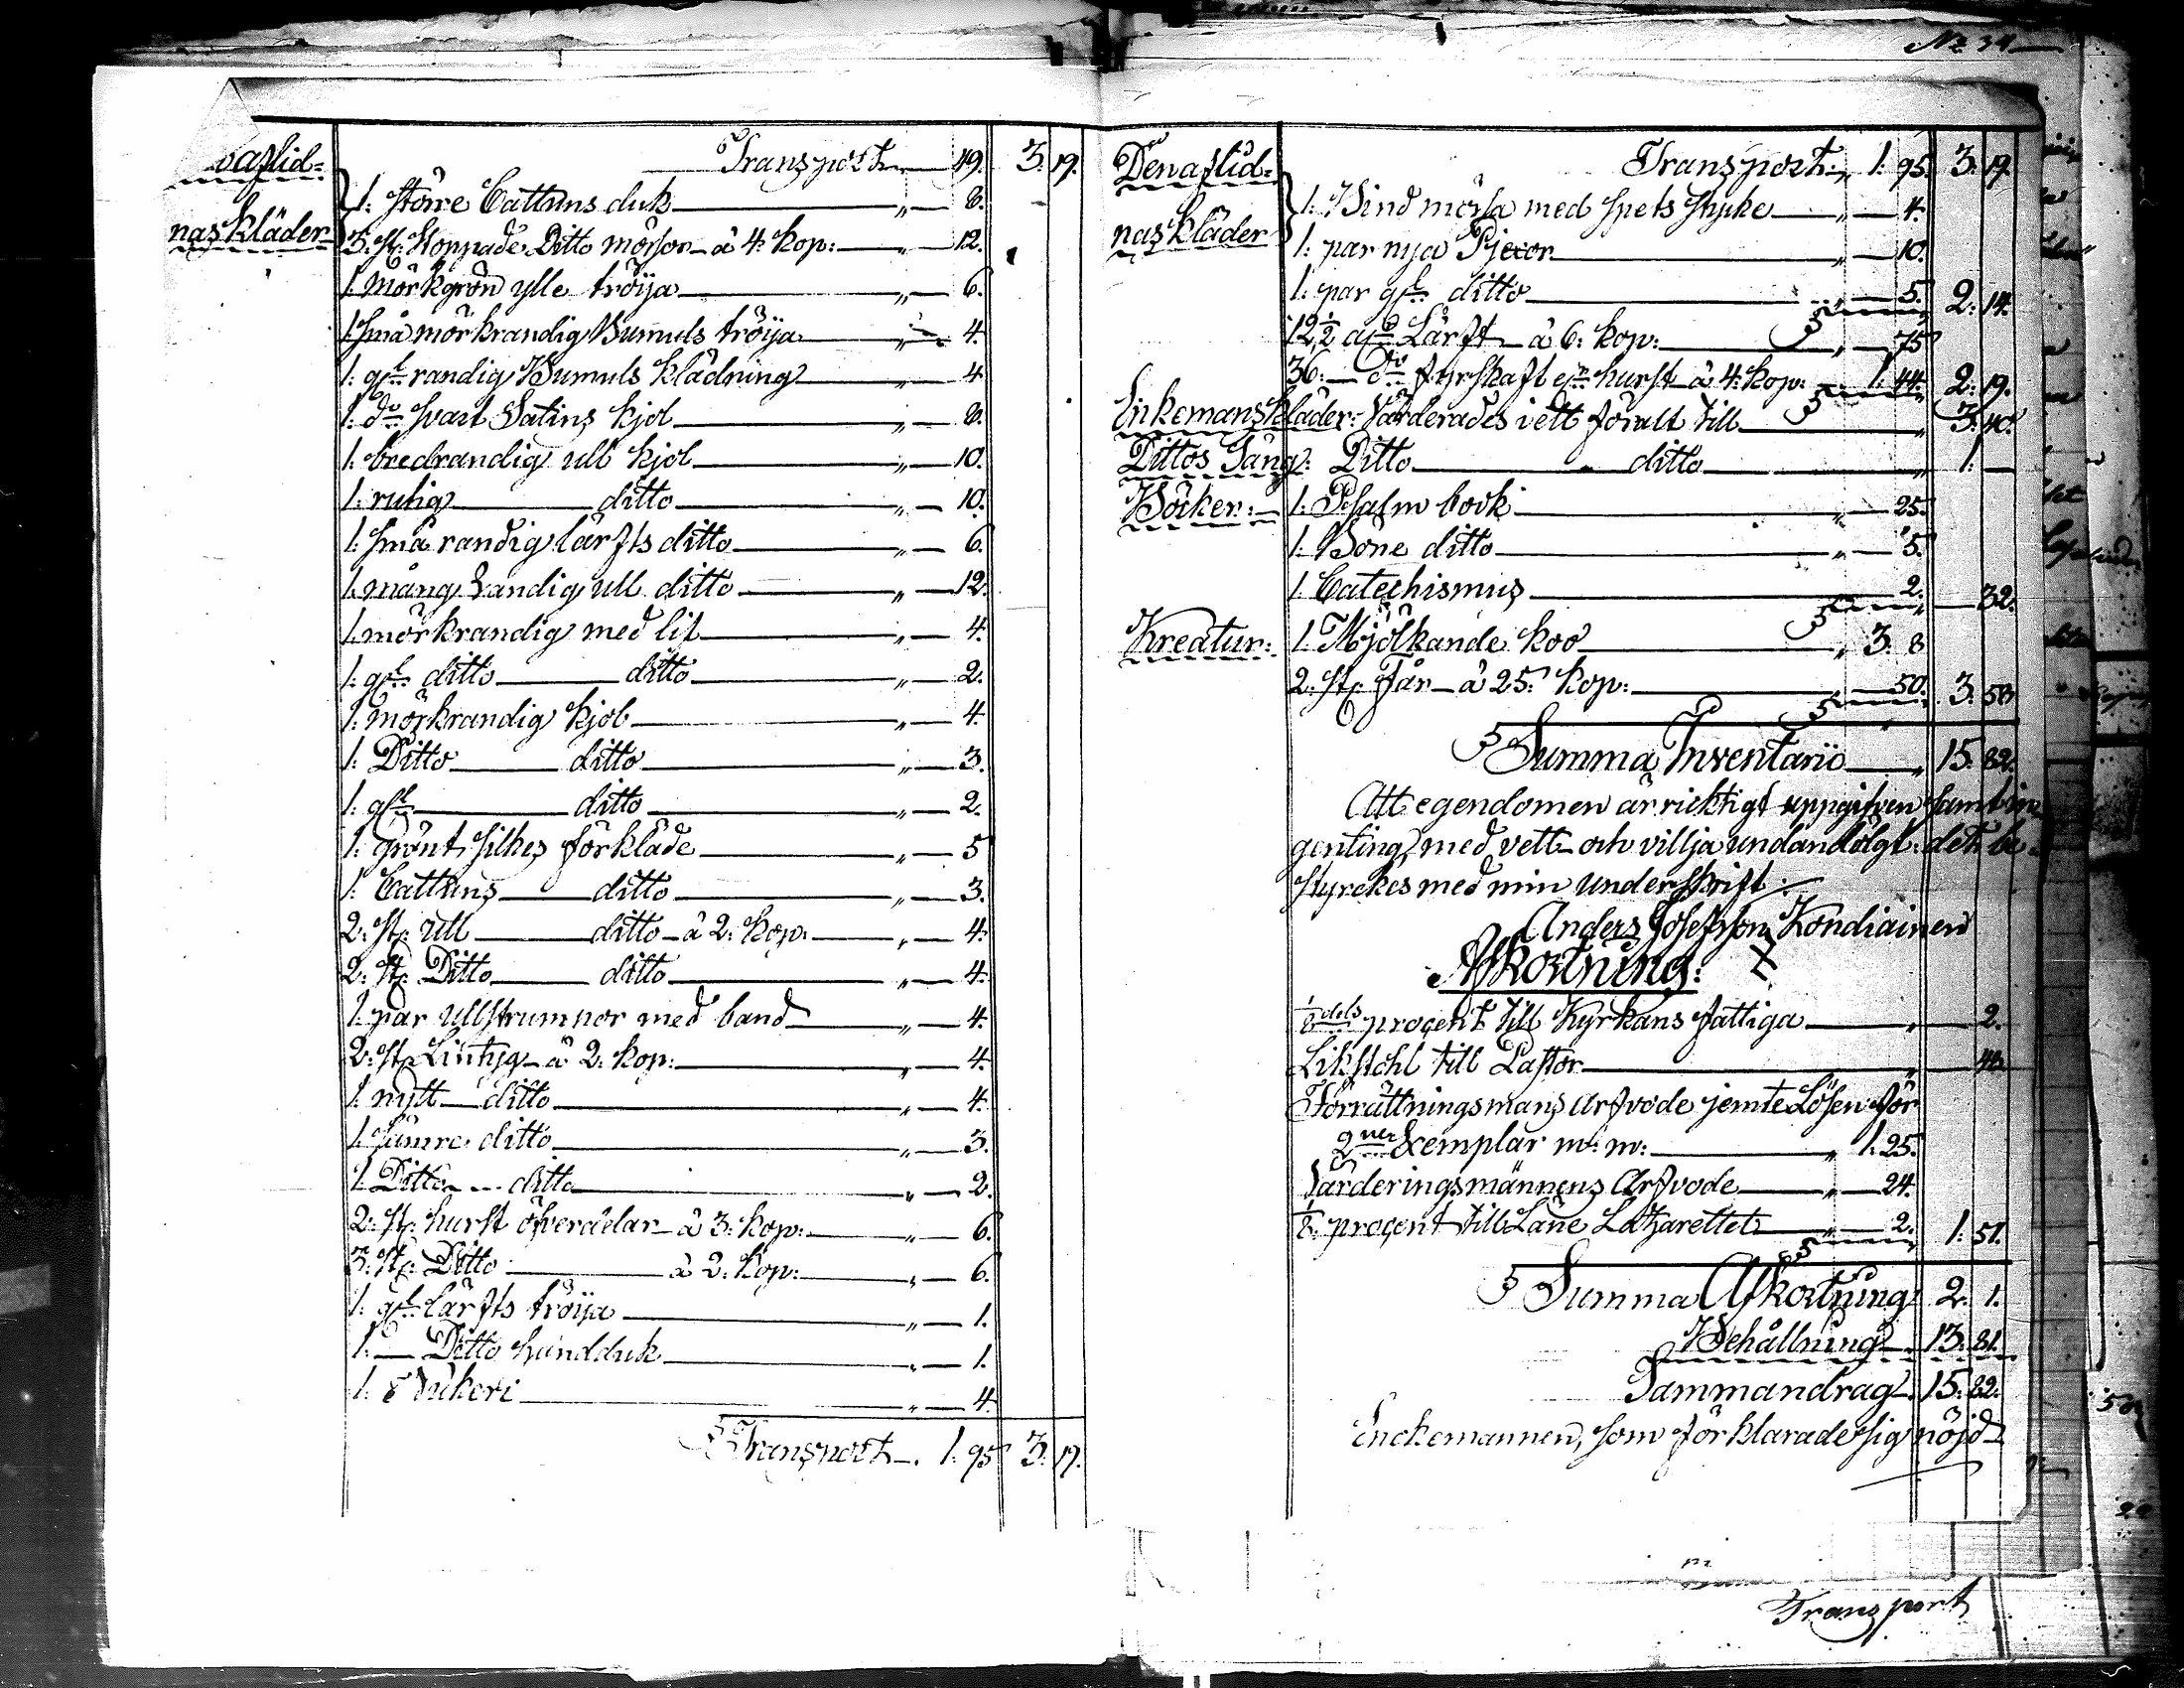 No 34
Transport 49. 3. 19.
vaflid=
1. större Cattuns duk " 8.
nas kläder
3. st. Stoppade Ditto mössor à 4. kop: " 12.
1. Mörkgrön ylle tröija " 6.
1. små mörkrandig Bumuls tröija " 4.
1. gl. randig Bumuls klädning " 4.
1. do svart Satins kjol " 8.
1. bredrandig ull kjol " 10.
1. rutig ditto " 10.
1. små randig lärfts ditto " 6.
1. mång randig ull ditto " 12.
1. mörkrandig med lit " 4.
1. gl. ditto ditto " 2.
1. mörkrandig kjol " 4.
1. Ditto ditto " 3.
1. gl. ditto " 2.
1. grönt silkes förkläde " 5
1. Cattuns ditto " 3.
2. st. ull ditto à 2. kop: " 4.
2. st. Ditto ditto " 4.
1. par ullstrumpor med band " 4.
2. st. Lintyg à 2. kop: " 4.
1. nytt ditto " 4.
1. sämre ditto " 3.
1. Ditto ditto " 2.
2. st. hurst öfverdelar à 3. kop: " 6.
3. st. Ditto à 2. kop: " 6.
1. gl. lärfts tröija " 1.
1. Ditto handduk " 1.
1. " 4.
Transport 1. 95 3. 19.
Den aflid=
Transport " 1. 95. 3. 19.
nas kläder
1. Bind mössa med spets stycke " 4.
1. par nya Pjexor " 10.
1. par gl. ditto " 5. 2. 14.
12 1/2 aln Lärft à 6. kop: " 75
36. do fyrskaft hurst à 4. kop: 1. 44. 2. 19.
Enkemans kläder: Värderades i ett för allt till " 3. 40.
Dittos Säng: Ditto ditto " 1. —
Böcker: 1. Psalm book " 25.
1. Böne ditto " 5.
1. Catechismus 2. 32.
Kreatur: 1. Mjölkande koo " 3. 8
2. st. Får à 25. kop: " 50. 3. 58
Summa Inventarii " 15. 82.
Att egendomen är ricktigt uppgifven samt in-
genting med vett och villja undandölgt det be-
styrckes med min underskrift.
Anders Josefsson Kondiainen
Afkortning:
1/8 dels procent till Kyrkans fattiga " 2.
Likstohl till Pastor " 48
Förrättningsmans arfvode jemte Lösen för
2ner Exemplar m: m: " 1. 25.
Värderingsmännens Arfvode " 24.
1/8 procent till Läne Lazarettet " 2. 1. 51.
Summa Afkortning 2. 1.
Behållning 13. 81.
Sammandrag 15. 82.
Enckemannen, som förklarade sig nöjd
Transport